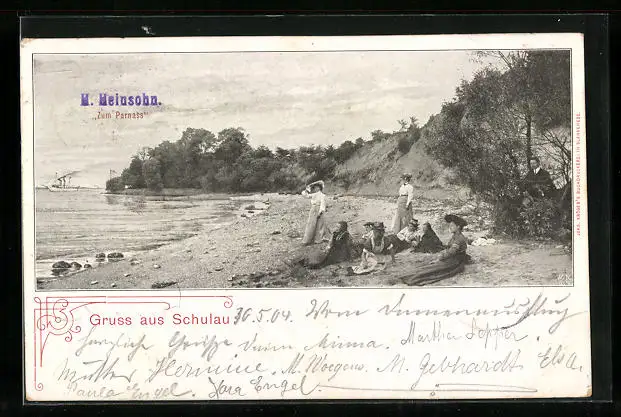 H. Heinsohn.
„Zum Parnass"
JOHS. KRÖGER'S BUCHDRUCKEREI, IN BLANKENESE.
Gruss aus Schulau 30.5.04. Vom Damenausflug
herzliche Grüße Deine Minna. Martha
Mutter Hermine. M. Woegens. M. Gebhardt. Elsa.
Paula Engel. Dora Engel.